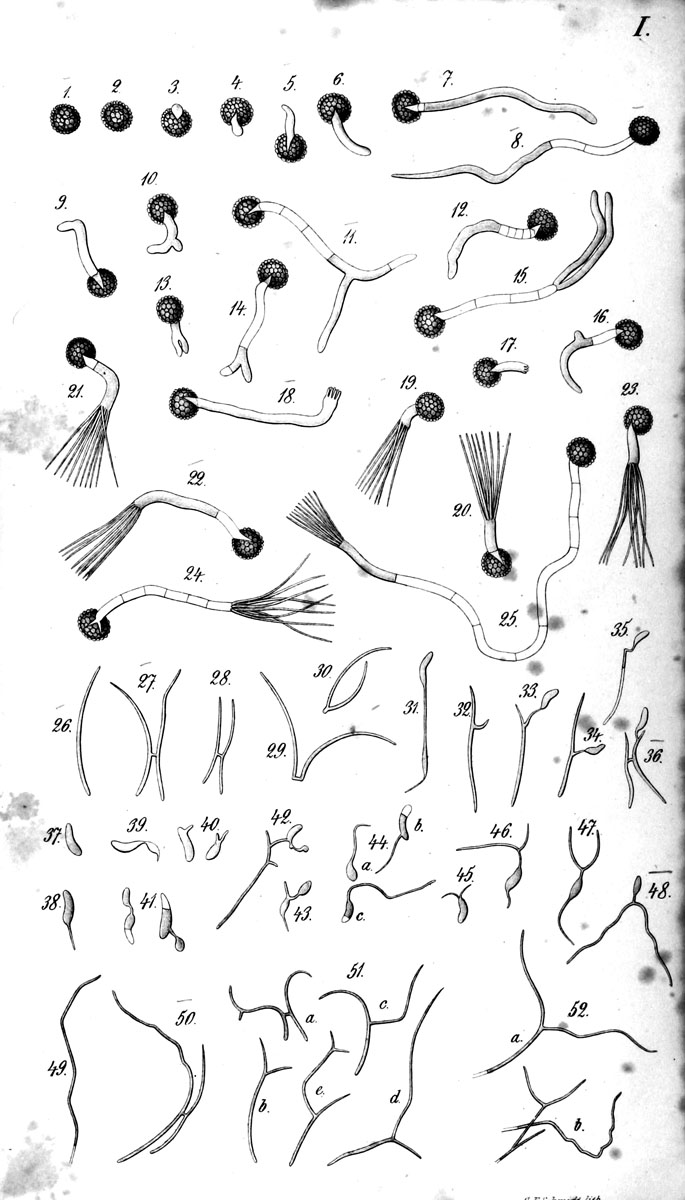 I.
1. 2. 3. 4. 5. 6. 7.
8.
9. 10. 11. 12.
13. 14. 15.
16.
17.
18. 19.
21. 23.
22. 20.
24. 25.
26. 27. 28. 29. 30. 31. 32. 33. 34. 35. 36.
37. 39. 40. 42. 44. a. b. 46. 47.
38. 41. 43. c. 45. 48.
49. 50. 51. a. b. c. d. e. 52. a. b.